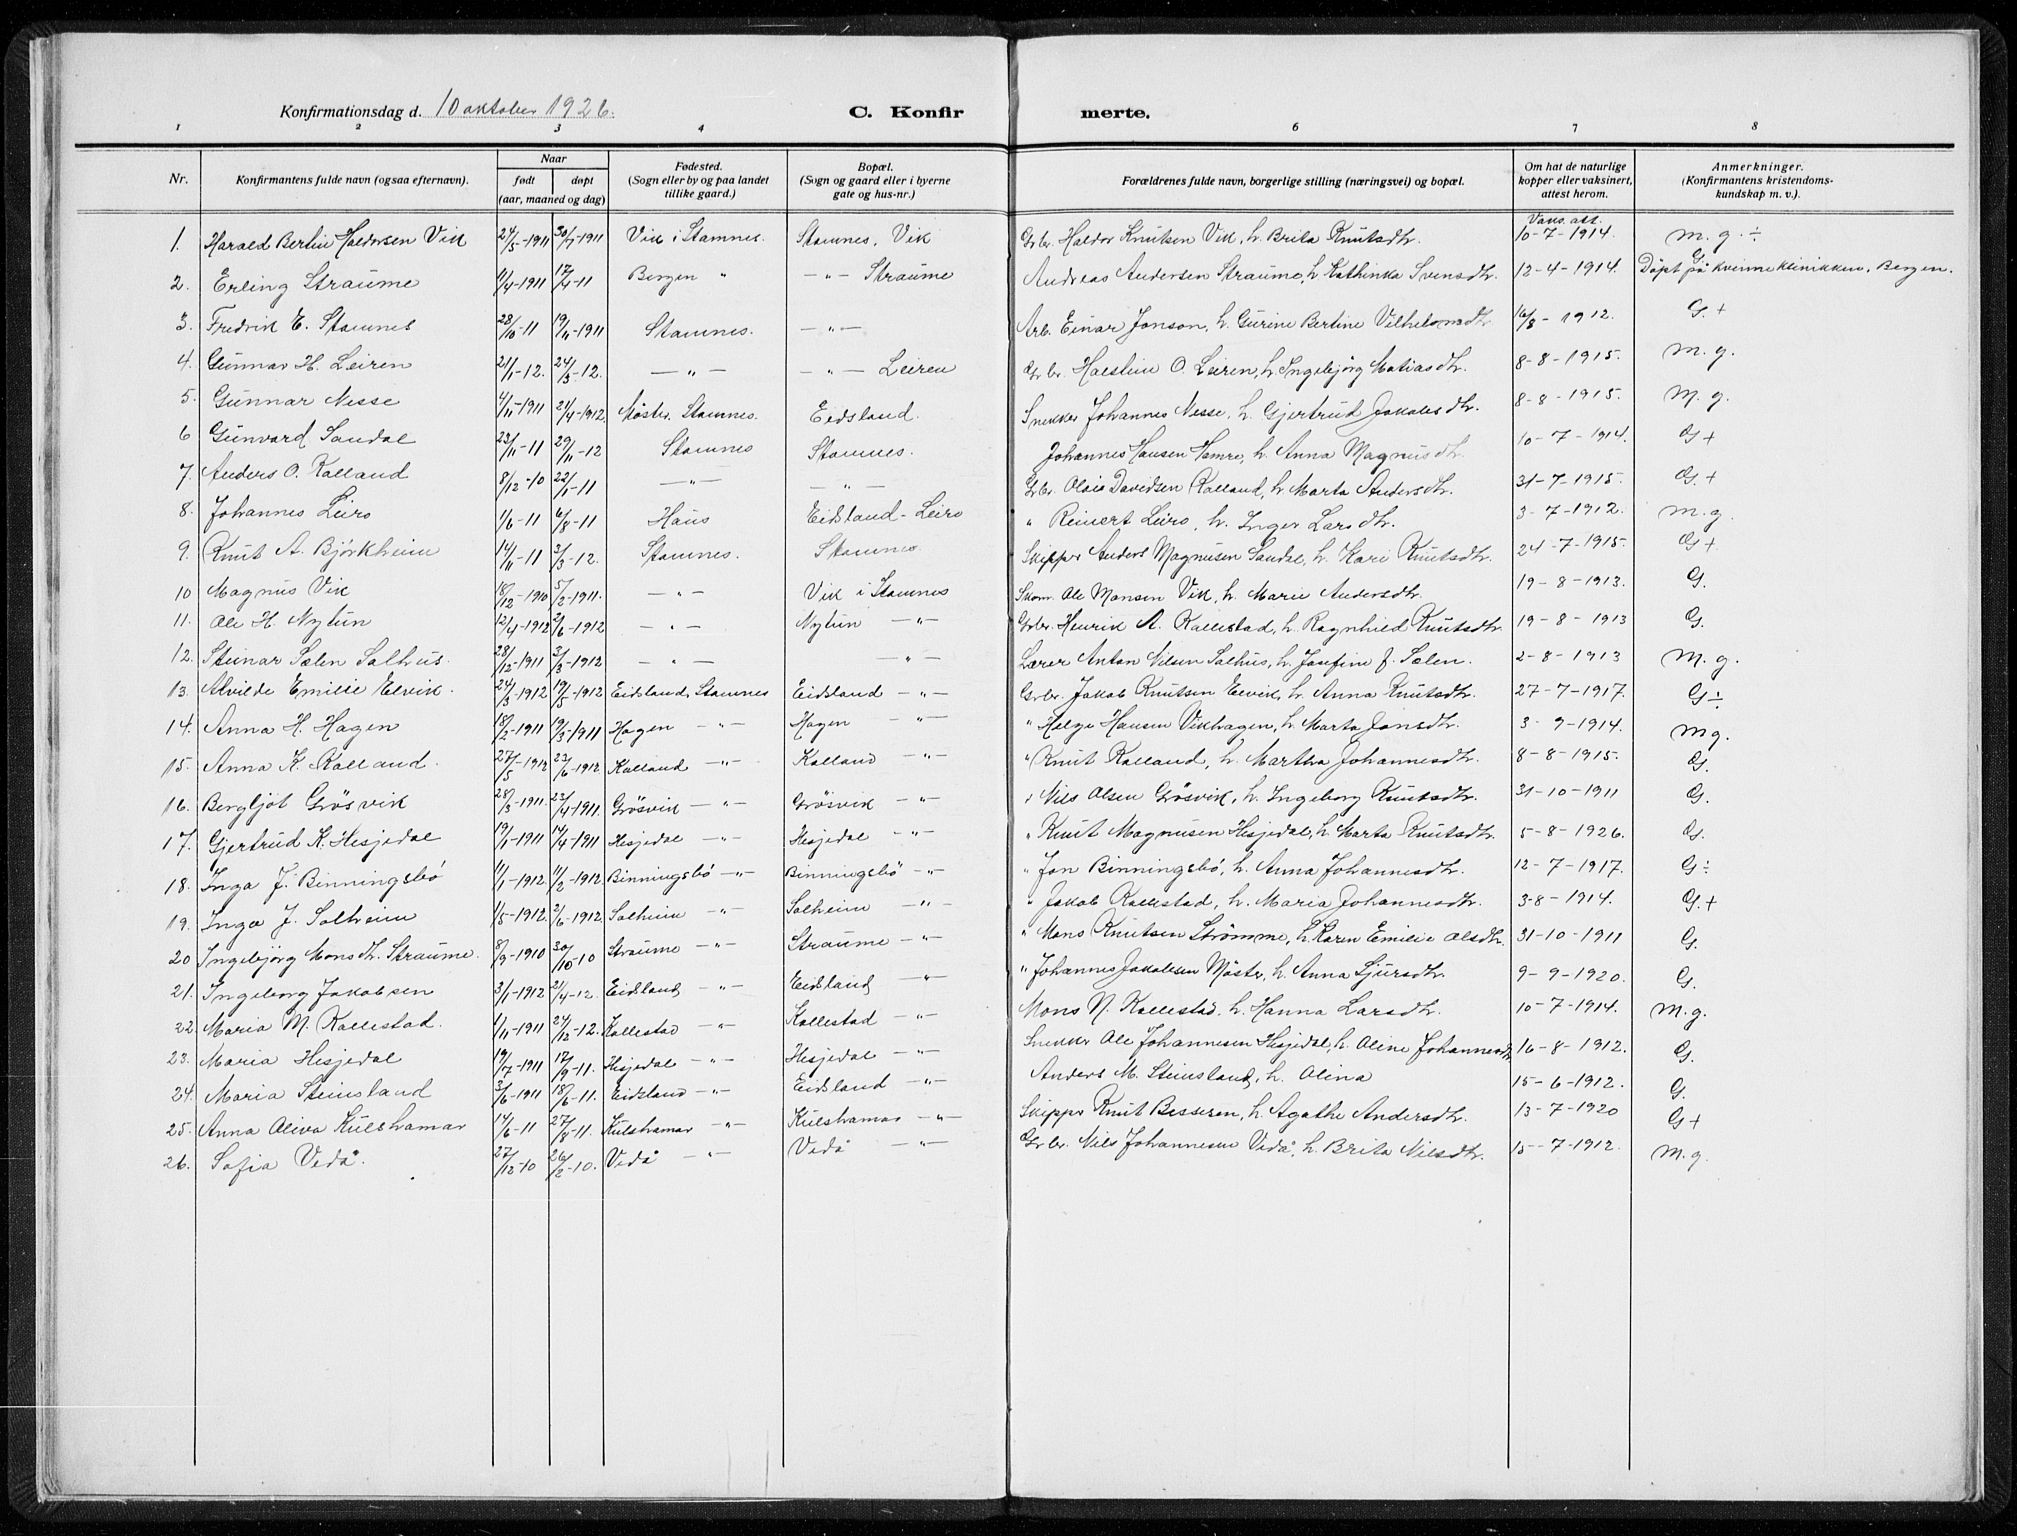 Konfirmationsdag d. 10 oktober 1926.
C. Konfir merte.
1 2 3 4 6 7 8
Nr. Konfirmantens fulde navn (ogsaa efternavn). Naar født døpt (aar, maaned og dag) Fødested. (Sogn eller by og paa landet tillike gaard.) Bopæl. (Sogn og gaard eller i byerne gate og hus-nr.) Forældrenes fulde navn, borgerlige stilling (næringsvei) og bopæl. Om hat de naturlige kopper eller vaksinert, attest herom. Anmerkninger. (Konfirmantens kristendoms-kundskap m. v.).
1. Harald Bertin Haldorsen Vik 24/5-1911 30/7-1911 Vik i Stamnes. Stamnes, Vik Grbr. Haldor Knutsen Vik, h. Brita Knutsdtr. Vaks. att. 10-7-1914. M. g. ÷
2. Erling Straume 1/4-1911 17/4-11 Bergen " —"— Straume Andreas Andersen Straume, h. Kathinka Svensdtr. 12-4-1914. G. Døpt på kvinneklinikken, Bergen.
3. Fredrik E. Stamnes 28/10-11 19/11-1911 Stamnes. —"— Arb. Einar Jonson, h. Gurine Bertine Vilhelmsdtr. 16/8-1912. G. +
4. Gunnar H. Leiren 21/1-12. 24/3-12. —"— —"— Leiren Grbr. Halstein O. Leiren, h. Ingebjørg Matiasdtr. 8-8-1915. M. g.
5. Gunnar Nesse 4/11-1911 21/4-1912. Møster, Stamnes. Eidsland. Snekker Johannes Nesse, h. Gjertrud Jakobsdtr. 8-8-1915. M. g.
6 Gunvard Sandal 23/11-11 29/11-12 Stamnes Stamnes. Johannes Hansen Hamre, h. Anna Magnusdtr. 10-7-1914. G +
7. Anders O. Kalland 8/12-10 22/1-11 —"— —"— Grbr. Olai Davidsen Kalland, h. Marta Andersdtr. 31-7-1915. G. +
8. Johannes Leiro 1/6-11 6/8-11 Haus Eidsland-Leiro " Reinert Leiro, h. Inger Larsdtr. 3-7-1912. M. g.
9. Knut A. Bjørkheim 14/11-11 3/3-12. Stamnes. Stamnes Skipper Anders Magnusen Sandal, h. Kari Knutsdtr. 24-7-1915. G +
10 Magnus Vik 18/12-1910 5/2-1911. —"— Vik i Stamnes Skom. Ole Monsen Vik, h. Marie Andersdtr. 19-8-1913. G.
11. Ole H. Nytun 12/4-1912 2/6-1912 —"— Nytun —"— Grbr. Henrik A. Kallestad, h. Ragnhild Knutsdtr. 19-8-1913 G.
12. Steinar Sælen Solhus. 28/12-1911 3/3-1912 —"— —"— Lærer Anton Nilsen Solhus, h. Josefine J. Sælen. 2-8-1913 M. g.
13. Alvilde Emilie Elvik. 24/3-1912 19/5-1912 Eidsland, Stamnes Eidsland —"— Grbr. Jakob Knutsen Elvik, h. Anna Knutsdtr. 27-7-1917. G ÷
14. Anna H. Hagen 18/2-1911 19/3-1911 Hagen —"— Hagen —"— " Helge Hansen Vikhagen, h. Marta Jonsdtr. 3-9-1914. Mg.
15. Anna K. Kalland. 27/5-1912 23/6-1912 Kalland —"— Kalland —"— " Knut Kalland, h. Martha Johannesdtr. 8-8-1915. G.
16. Bergljot Grøsvik 28/3-1911. 23/4-1911. Grøsvik —"— Grøsvik —"— " Nils Olsen Grøsvik, h. Ingeborg Knutsdtr. 31-10-1911 G.
17. Gjertrud K. Hesjedal 19/1-1911 14/4-1911 Hesjedal —"— Hesjedal —"— " Knut Magnusen Hesjedal, h. Marta Knutsdtr. 5-8-1926. G.
18. Inga J. Binningsbø 11/1-1912 11/2-1912 Binningsbø —"— Binningsbø —"— " Jon Binningsbø, h. Anna Johannesdtr. 12-7-1917. G ÷
19. Inga J. Solheim 1/5-1912 2/6-1912 Solheim —"— Solheim —"— " Jakob Kallestad, h. Maria Johannesdtr. 3-8-1914. G. +
20 Ingebjørg Monsdtr. Straume. 8/9-1910 30/10-10 Straume —"— Straume —"— " Mons Knutsen Strømme, h. Karen Emilie Olsdtr. 31-10-1911 G.
21. Ingeborg Jakobsen 3/1-1912 2/4-12. Eidsland —"— Eidsland —"— " Johannes Jakobsen Møster, h. Anna Sjursdtr. 9-9-1920. G.
22. Maria M. Kallestad. 1/11-1911 24/12-12. Kallestad —"— Kallestad —"— Mons N. Kallestad, h. Hanna Larsdtr. 10-7-1914. M. g.
23. Maria Hesjedal 19/7-1911 17/9-11. Hesjedal —"— Hesjedal —"— Snekker Ole Johannesen Hesjedal, h. Oline Johannesdtr 16-8-1912. G.
24. Maria Steinsland 3/6-1911 18/6-11. Eidsland —"— Eidsland —"— Anders M. Steinsland, h. Olina 15-6-1912. G.
25. Anna Oliva Kulshamar 14/6-11 27/8-11. Kulshamar —"— Kulshamar —"— Skipper Knut Besseren, h. Agathe Andersdtr. 13-7-1920 G +
26. Sofia Vedå. 27/12-10 26/2-10. Vedå —"— Vedå —"— Grbr. Nils Johannesen Vedå, h. Brita Nilsdtr. 15-7-1912. M. g.